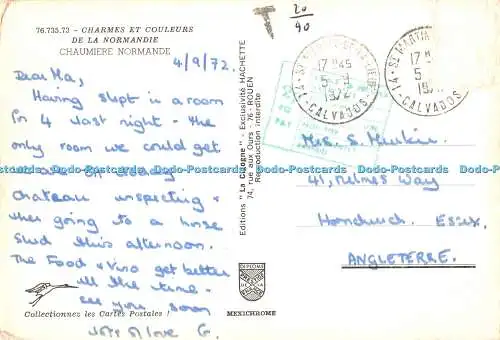 76.735.73 - CHARMES ET COULEURS
DE LA NORMANDIE
CHAUMIERE NORMANDE
4/9/72.
Dear Ma,
Having slept in a room
for 4 last night - the
only room we could get
we are on
chateau inspecting &
then going to a horse
stud this afternoon.
The Food & Vino get better
all the time -
see you soon
lots of love G.
Collectionnez les Cartes Postales !
Editions "La Cigogne" - Exclusivité HACHETTE
74, rue aux Ours - 76 - ROUEN
Reproduction interdite
MEXICHROME
T
20
90
17H45
5-9
1972
14-
CALVADOS
14-St MARTIN
17H
5
19
CALVADOS
TO
PAY
Mrs. S.
41, Nelmes Way
Hornchurch Essex.
ANGLETERRE.
www.oldpostcards.com